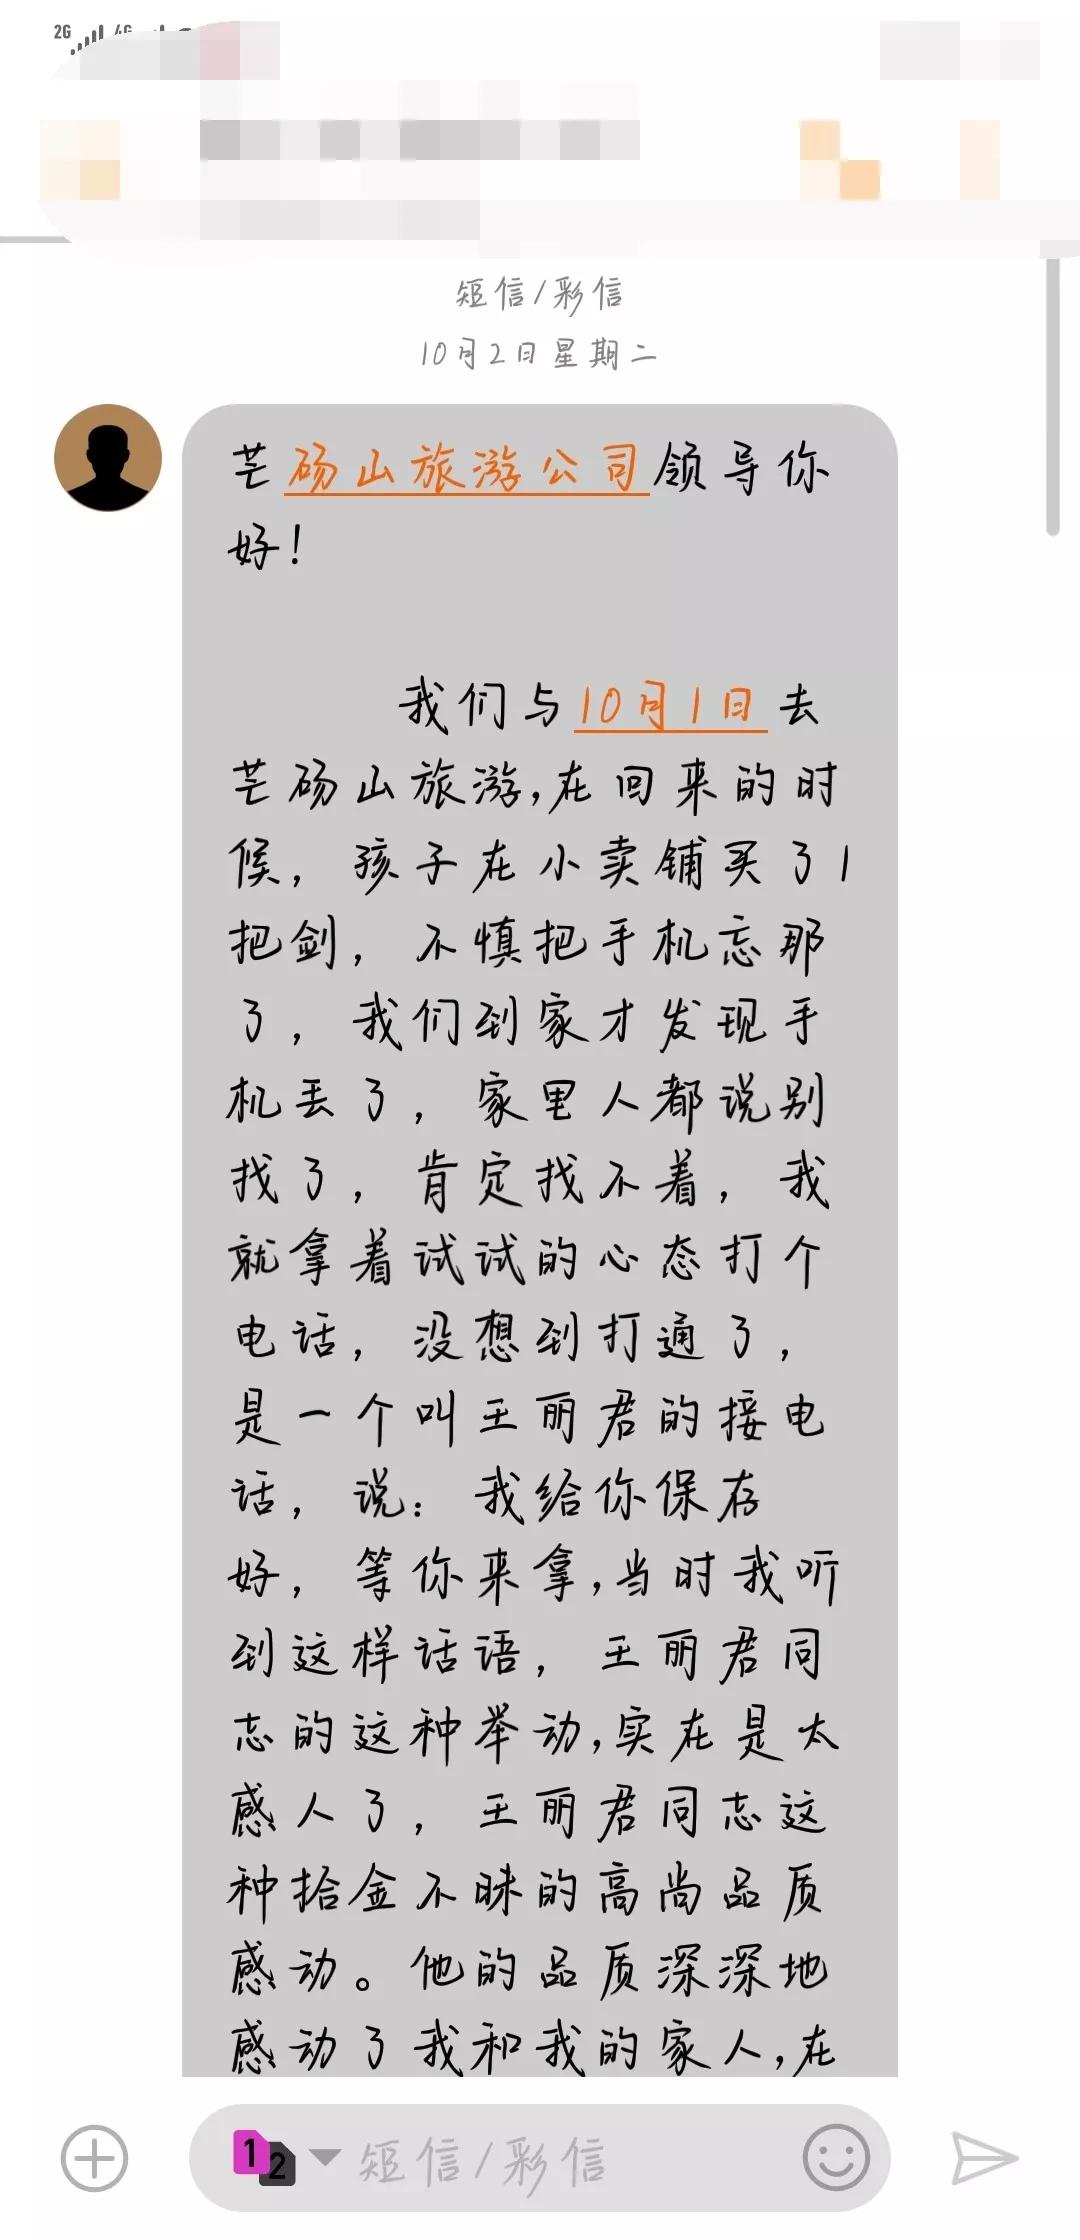 2G 4G
短信/彩信
10月2日星期二
芒砀山旅游公司领导你
好!
我们与10月1日去
芒砀山旅游,在回来的时
候,孩子在小卖铺买了1
把剑,不慎把手机忘那
了,我们到家才发现手
机丢了,家里人都说别
找了,肯定找不着,我
就拿着试试的心态打个
电话,没想到打通了,
是一个叫王丽君的接电
话,说:我给你保存
好,等你来拿,当时我听
到这样话语,王丽君同
志的这种举动,实在是太
感人了,王丽君同志这
种拾金不昧的高尚品质
感动。他的品质深深地
感动了我和我的家人,在
1 2 短信/彩信